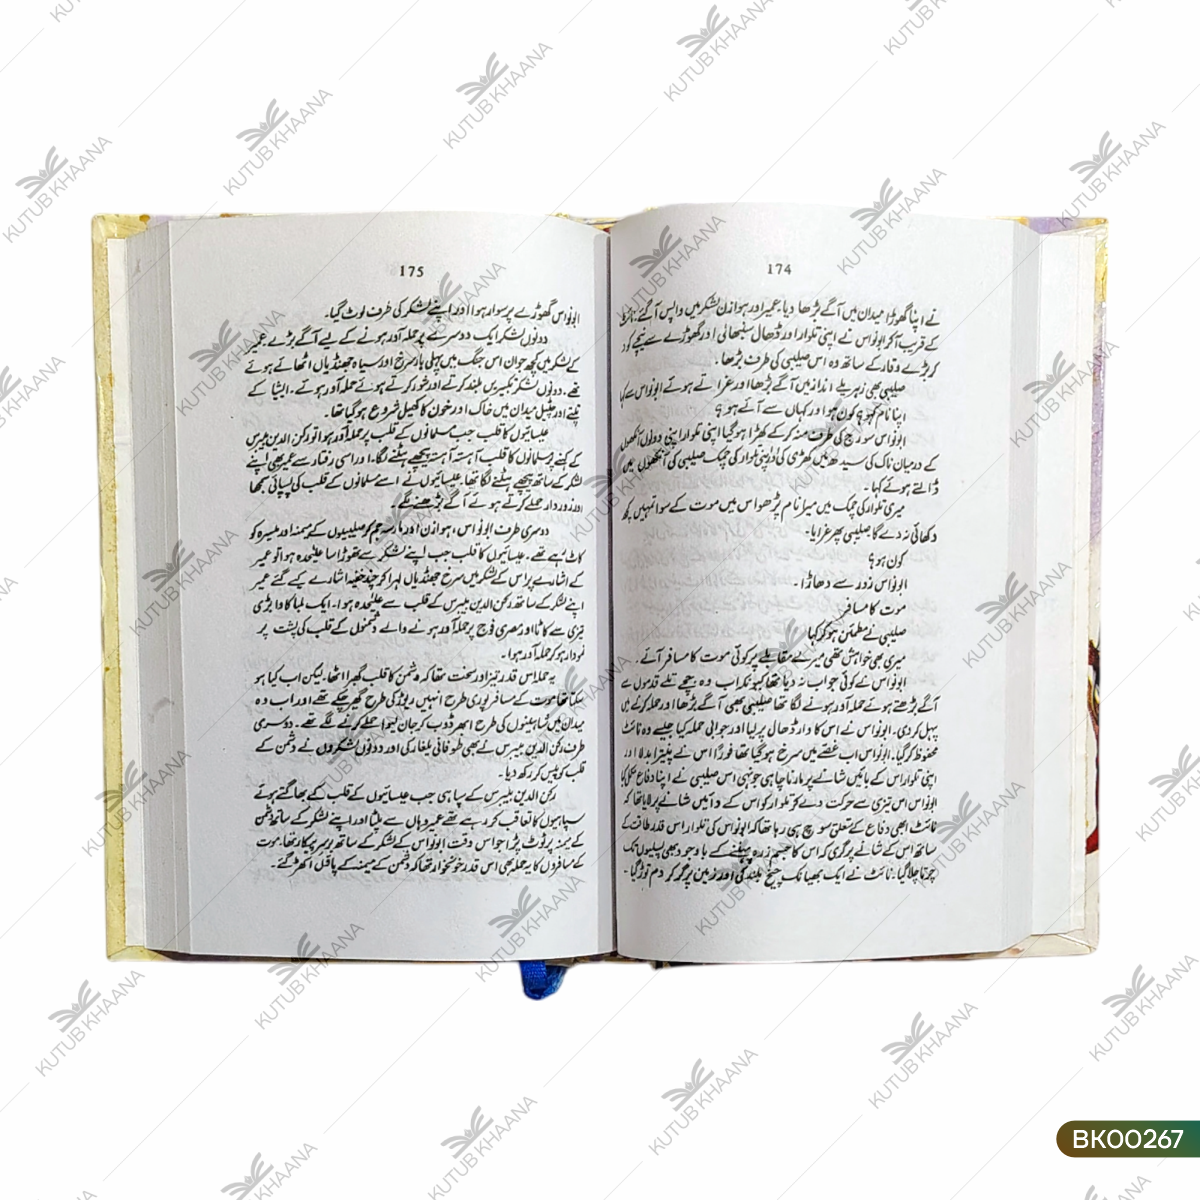 174
نے اپنا گھوڑا میدان میں آگے بڑھا دیا۔ عمیر اور ہوازن لشکر میں واپس آگئے۔ نائٹ
کے قریب آکر ابونواس نے اپنی تلوار اور ڈھال سنبھالی اور گھوڑے سے نیچے کود
کر بڑے وقار کے ساتھ وہ اس صلیبی کی طرف بڑھا۔
صلیبی بھی زہریلے انداز میں آگے بڑھا اور غراتے ہوئے ابونواس سے کہا
اپنا نام کہو؟ کون ہو اور کہاں سے آئے ہو؟
ابونواس سورج کی طرف منہ کر کے کھڑا ہوگیا اپنی تلوار اپنی دونوں آنکھوں
کے درمیان ناک کی سیدھ میں کھڑی کی اور اپنی تلوار کی چمک صلیبی کی آنکھوں میں
ڈالتے ہوئے کہا۔
میری تلوار کی چمک میں میرا نام پڑھو اس میں موت کے سوا تمہیں کچھ
دکھائی نہ دے گا صلیبی پھر غرایا۔
کون ہو؟
ابونواس زور سے دھاڑا۔
موت کا مسافر
صلیبی نے مطمئن ہوکر کہا
میری بھی خواہش تھی میرے مقابلے پر کوئی موت کا مسافر آئے۔
ابونواس نے کوئی جواب نہ دیا تھا کیونکہ اب وہ جچے تلے قدموں سے
آگے بڑھتے ہوئے حملہ آور ہونے لگا تھا صلیبی بھی آگے بڑھا اور حملہ کرنے میں
پہل کر دی۔ ابونواس نے اس کا وار ڈھال پر لیا اور جوابی حملہ کیا جسے وہ نائٹ
محفوظ کر گیا۔ ابونواس اب غصے میں سرخ ہوگیا تھا فوراً اس نے پینترا بدلا اور
اپنی تلوار اس کے بائیں شانے پر مارنا چاہی جونہی اس صلیبی نے اپنا دفاع
ابونواس اس تیزی سے حرکت دے کر تلوار کو اس کے دائیں شانے پر لایا تھا کہ
نائٹ ابھی دفاع کے متعلق سوچ ہی رہا تھا کہ ابونواس کی تلوار اس قدر طاقت کے
ساتھ اس کے شانے پر گری کہ اس کا جسم زرہ پہننے کے باوجود بھی پسلیوں تک
چرتا چلا گیا۔ نائٹ نے ایک بھیانک چیخ بلند کی اور زمین پر گر کر دم توڑ گیا۔
175
ابونواس گھوڑے پر سوار ہوا اور اپنے لشکر کی طرف لوٹ گیا۔
دونوں لشکر ایک دوسرے پر حملہ آور ہونے کے لیے آگے بڑے عمیر
کے لشکر میں کچھ جوان اس جنگ میں پہلی بار سرخ اور سیاہ جھنڈیاں اٹھائے ہوئے
تھے۔ دونوں لشکر تکبیریں بلند کرتے اور شور کرتے ہوئے حملہ آور ہوئے۔ ایشیا کے
تپتے اور چٹیل میدان میں خاک اور خون کا کھیل شروع ہوگیا تھا۔
عیسائیوں کا قلب جب مسلمانوں کے قلب پر حملہ آور ہوا تو رکن الدین بیبرس
کے کہنے پر مسلمانوں کا قلب آہستہ آہستہ پیچھے ہٹنے لگا۔ اور اسی رفتار سے عمیر بھی اپنے
لشکر کے ساتھ پیچھے ہٹنے لگا تھا۔ عیسائیوں نے اسے مسلمانوں کے قلب کی پسپائی سمجھا
اور زوردار حملے کرتے ہوئے آگے بڑھنے لگے۔
دوسری طرف ابونواس، ہوازن اور مارسہ جم کر صلیبیوں کے میمنہ اور میسرہ کو
کاٹ رہے تھے۔ عیسائیوں کا قلب جب اپنے لشکر سے تھوڑا سا علیٰحدہ ہوا تو عمیر
کے اشارے پر اس کے لشکر میں سرخ جھنڈیاں لہرا کر چند خفیہ اشارے کیے گئے عمیر
اپنے لشکر کے ساتھ رکن الدین بیبرس کے قلب سے علیٰحدہ ہوا۔ ایک لمبا کاوا بڑی
تیزی سے کاٹا اور مصری فوج پر حملہ آور ہونے والے دشمنوں کے قلب کی پشت پر
نمودار ہو کر حملہ آور ہوا۔
یہ حملہ اس قدر تیز اور سخت تھا کہ دشمن کا قلب گھبرا اٹھا۔ لیکن اب کیا ہو
سکتا تھا موت کے مسافر پوری طرح انہیں ریوڑ کی طرح گھیر چکے تھے اور اب وہ
میدان میں نہنگوں کی طرح ابھر ڈوب کر جان لیوا حملے کرنے لگے تھے۔ دوسری
طرف رکن الدین بیبرس نے بھی طوفانی یلغار کی اور دونوں لشکروں نے دشمن کے
قلب کو پیس کر رکھ دیا۔
رکن الدین بیبرس کے سپاہی جب عیسائیوں کے قلب کے بھاگتے ہوئے
سپاہیوں کا تعاقب کر رہے تھے عمیر وہاں سے پلٹا اور اپنے لشکر کے ساتھ دشمن
کے میمنہ پر ٹوٹ پڑا جو اس وقت ابونواس کے لشکر کے ساتھ برسرپیکار تھا۔ موت
کے مسافروں کا یہ حملہ بھی اس قدر خونخوار تھا کہ دشمن کے میمنہ کے پاؤں اکھڑ گئے۔
KUTUB KHAANA
BK00267